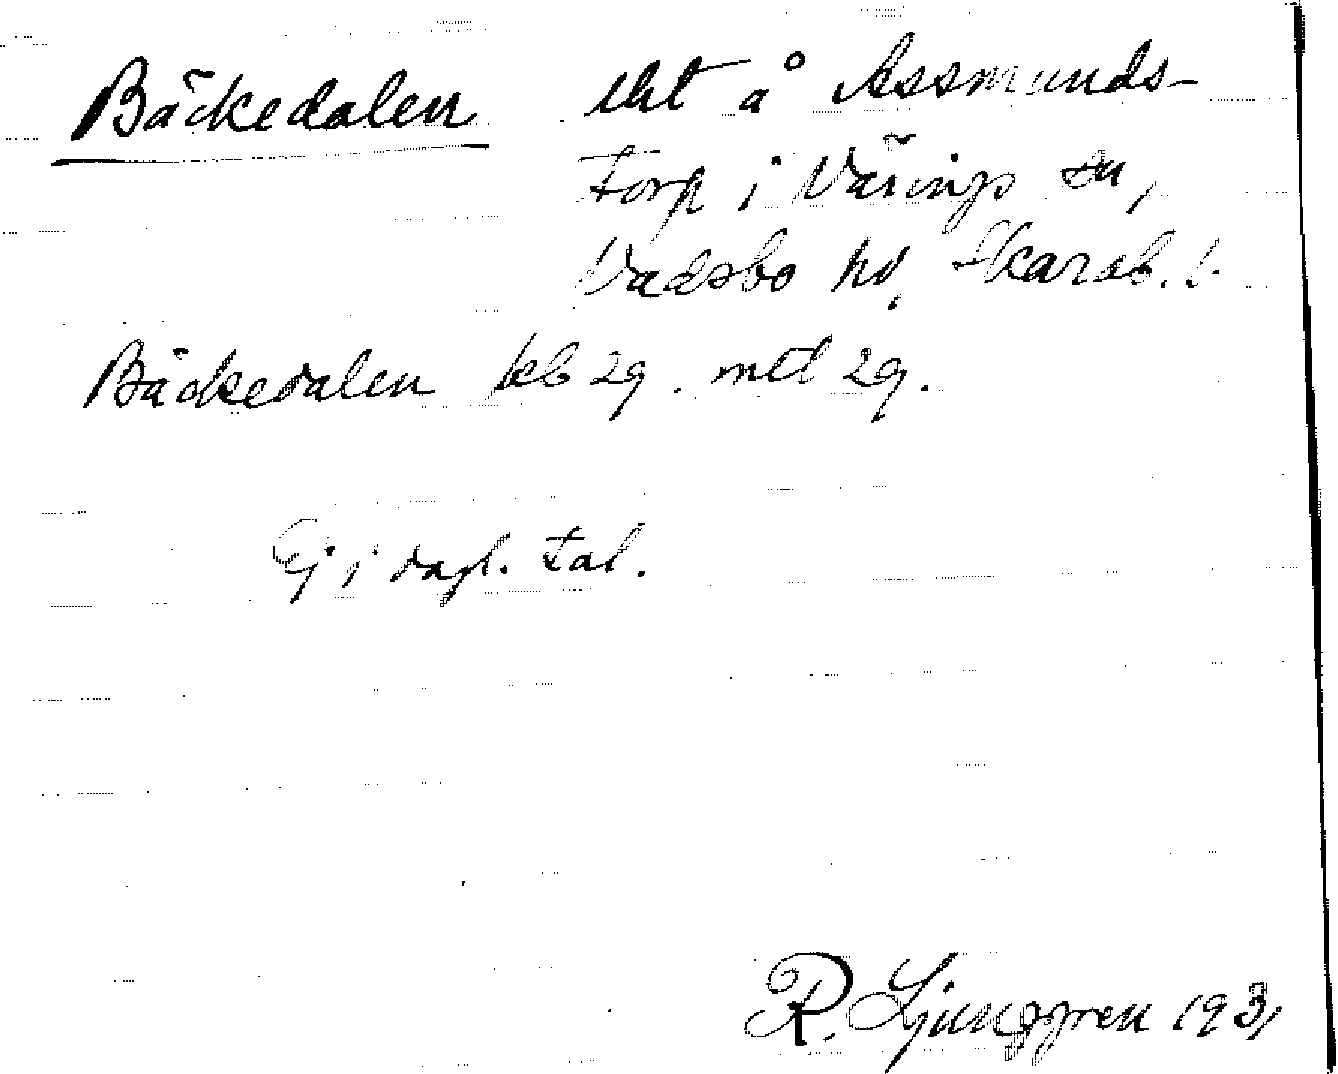 Bäckedalen lht å Assmunds-
torp i Värings sn,
Vadsbo hd, Skarab. l.
Bäckedalen kb 29. mtl 29.
Ej i dagl. tal.
R. Ljunggren 1931